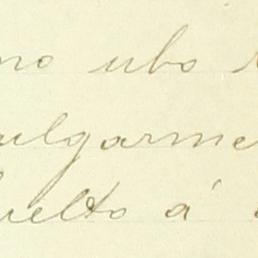 no ubo
ulgarme
uelto á